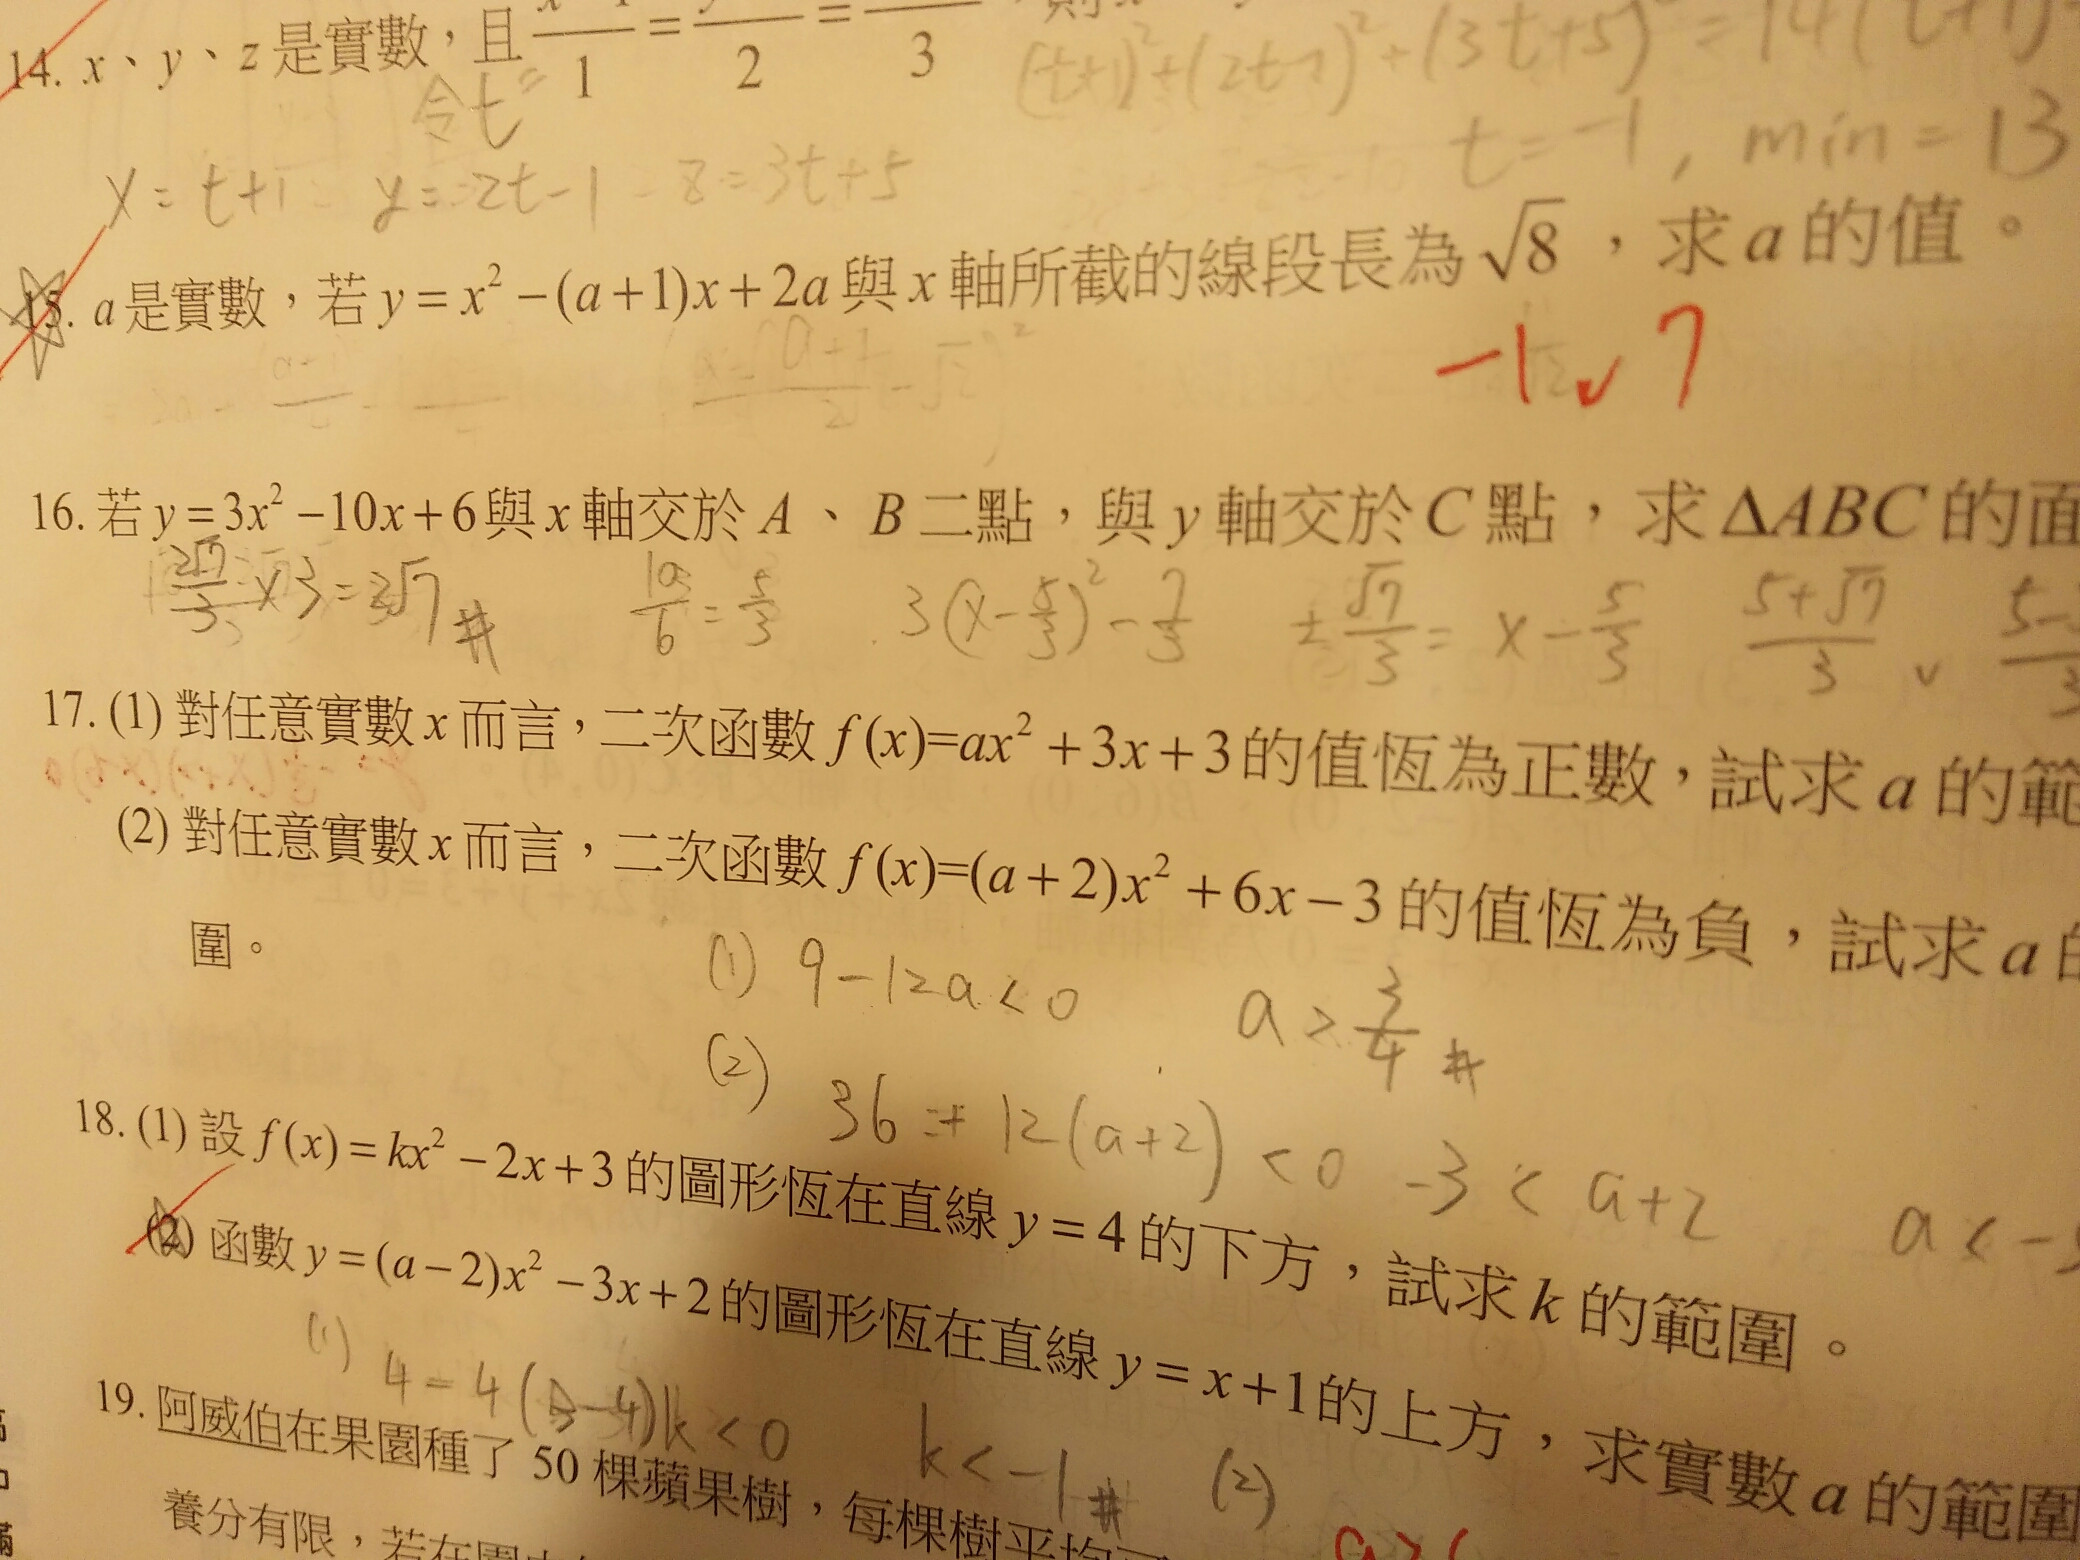 14. x、y、z 是實數,且 x-1/1 = y/2 = /3
(t+1)²+(2t-1)²+(3t+5)² = 14(t+1)
令t=
t=-1, min=13
x=t+1 y=2t-1 z=3t+5
15. a是實數,若 y=x²-(a+1)x+2a 與 x 軸所截的線段長為 √8,求 a 的值。
-1、7
16. 若 y=3x²-10x+6 與 x 軸交於 A、B 二點,與 y 軸交於 C 點,求 ΔABC 的面
2√7/3 ×3=2√7 # 10/6=5/3 3(x-5/3)²-7/3 ±√7/3=x-5/3 5+√7/3、5-
17. (1) 對任意實數 x 而言,二次函數 f(x)=ax²+3x+3 的值恆為正數,試求 a 的範
(2) 對任意實數 x 而言,二次函數 f(x)=(a+2)x²+6x-3 的值恆為負,試求 a 的
圍。
(1) 9-12a<0 a>3/4 #
(2) 36+12(a+2)<0 -3<a+2 a<-5
18. (1) 設 f(x)=kx²-2x+3 的圖形恆在直線 y=4 的下方,試求 k 的範圍。
(2) 函數 y=(a-2)x²-3x+2 的圖形恆在直線 y=x+1 的上方,求實數 a 的範圍
(1) 4-4(3-4)k<0 k<-1 # (2)
19. 阿威伯在果園種了 50 棵蘋果樹,每棵樹平均
養分有限,若在園